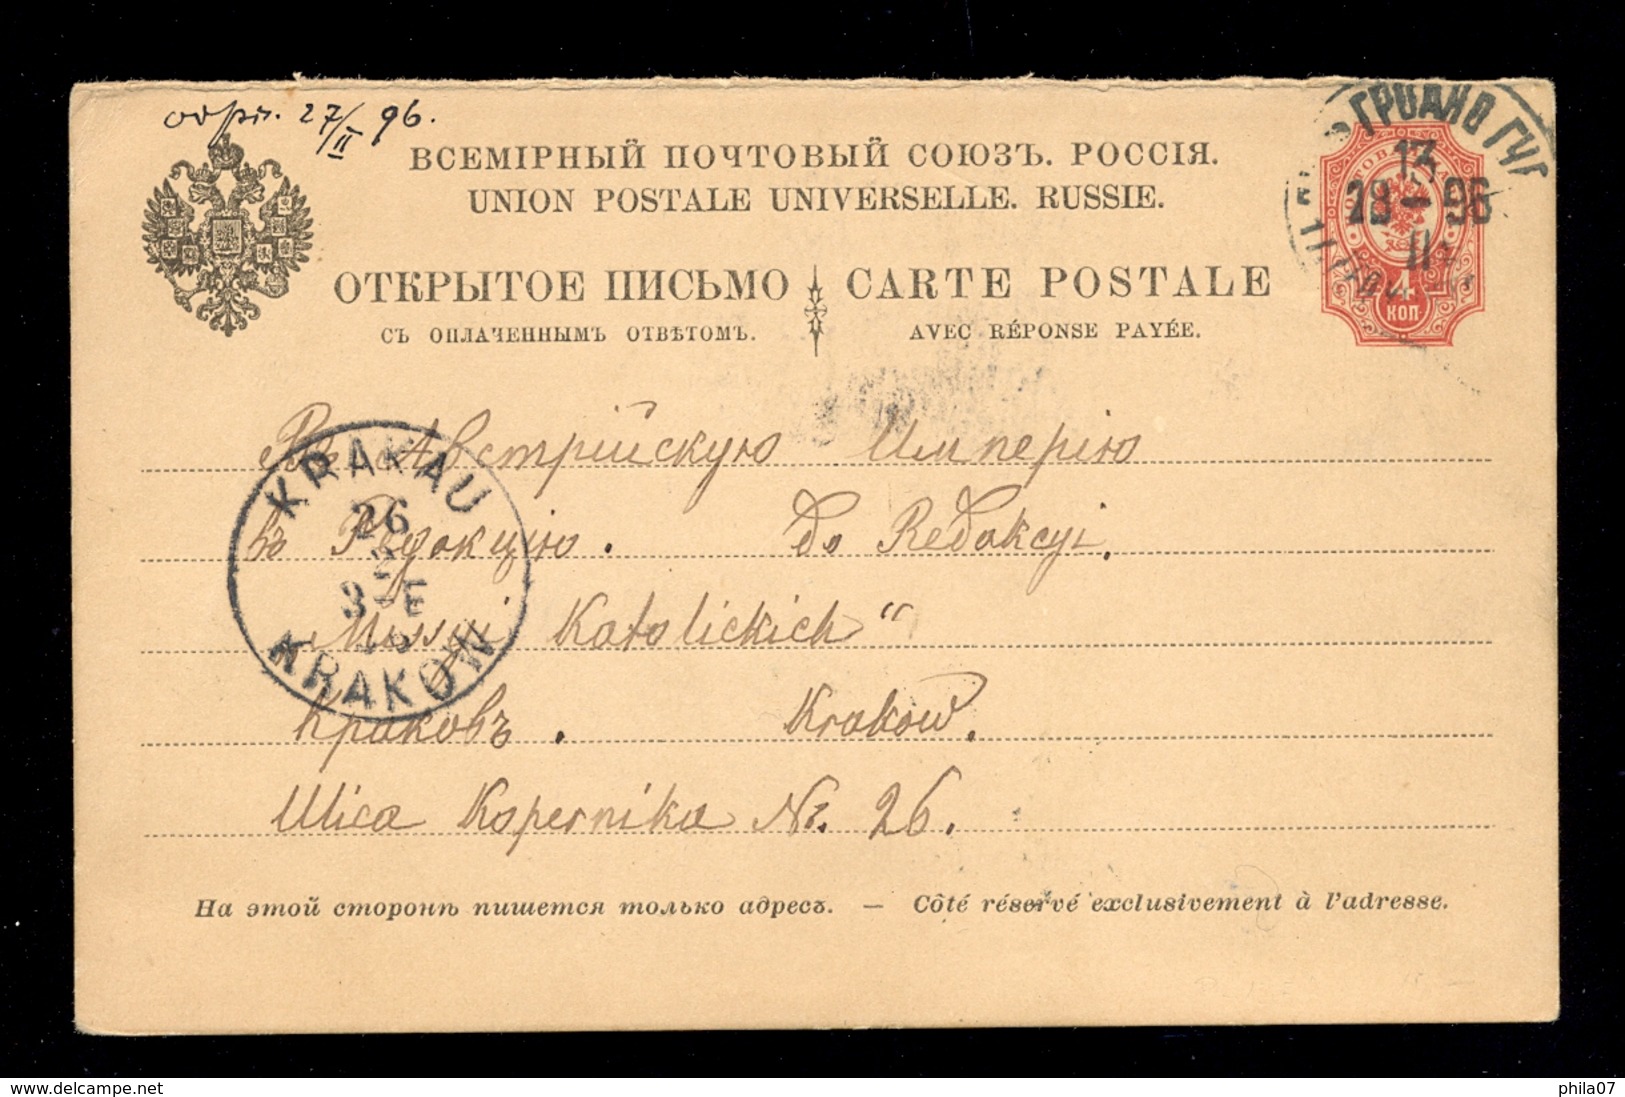 одрп. 27/II 96.
ВСЕМІРНЫЙ ПОЧТОВЫЙ СОЮЗЪ. РОССІЯ.
UNION POSTALE UNIVERSELLE. RUSSIE.
ОТКРЫТОЕ ПИСЬМО CARTE POSTALE
СЪ ОПЛАЧЕННЫМЪ ОТВѢТОМЪ. AVEC RÉPONSE PAYÉE.
ГРОДНО ГУБ
13
28 96
II
4
КОП.
Въ Австрійскую Имперію
въ Редакцію. Do Redakcyi.
„Missyi Katolickich“
Краковъ. Kraków.
Ulica Kopernika Nr. 26.
KRAKAU
26
3-E
KRAKOW
На этой сторонѣ пишется только адресъ. — Côté réservé exclusivement à l'adresse.
www.delcampe.net
phila07